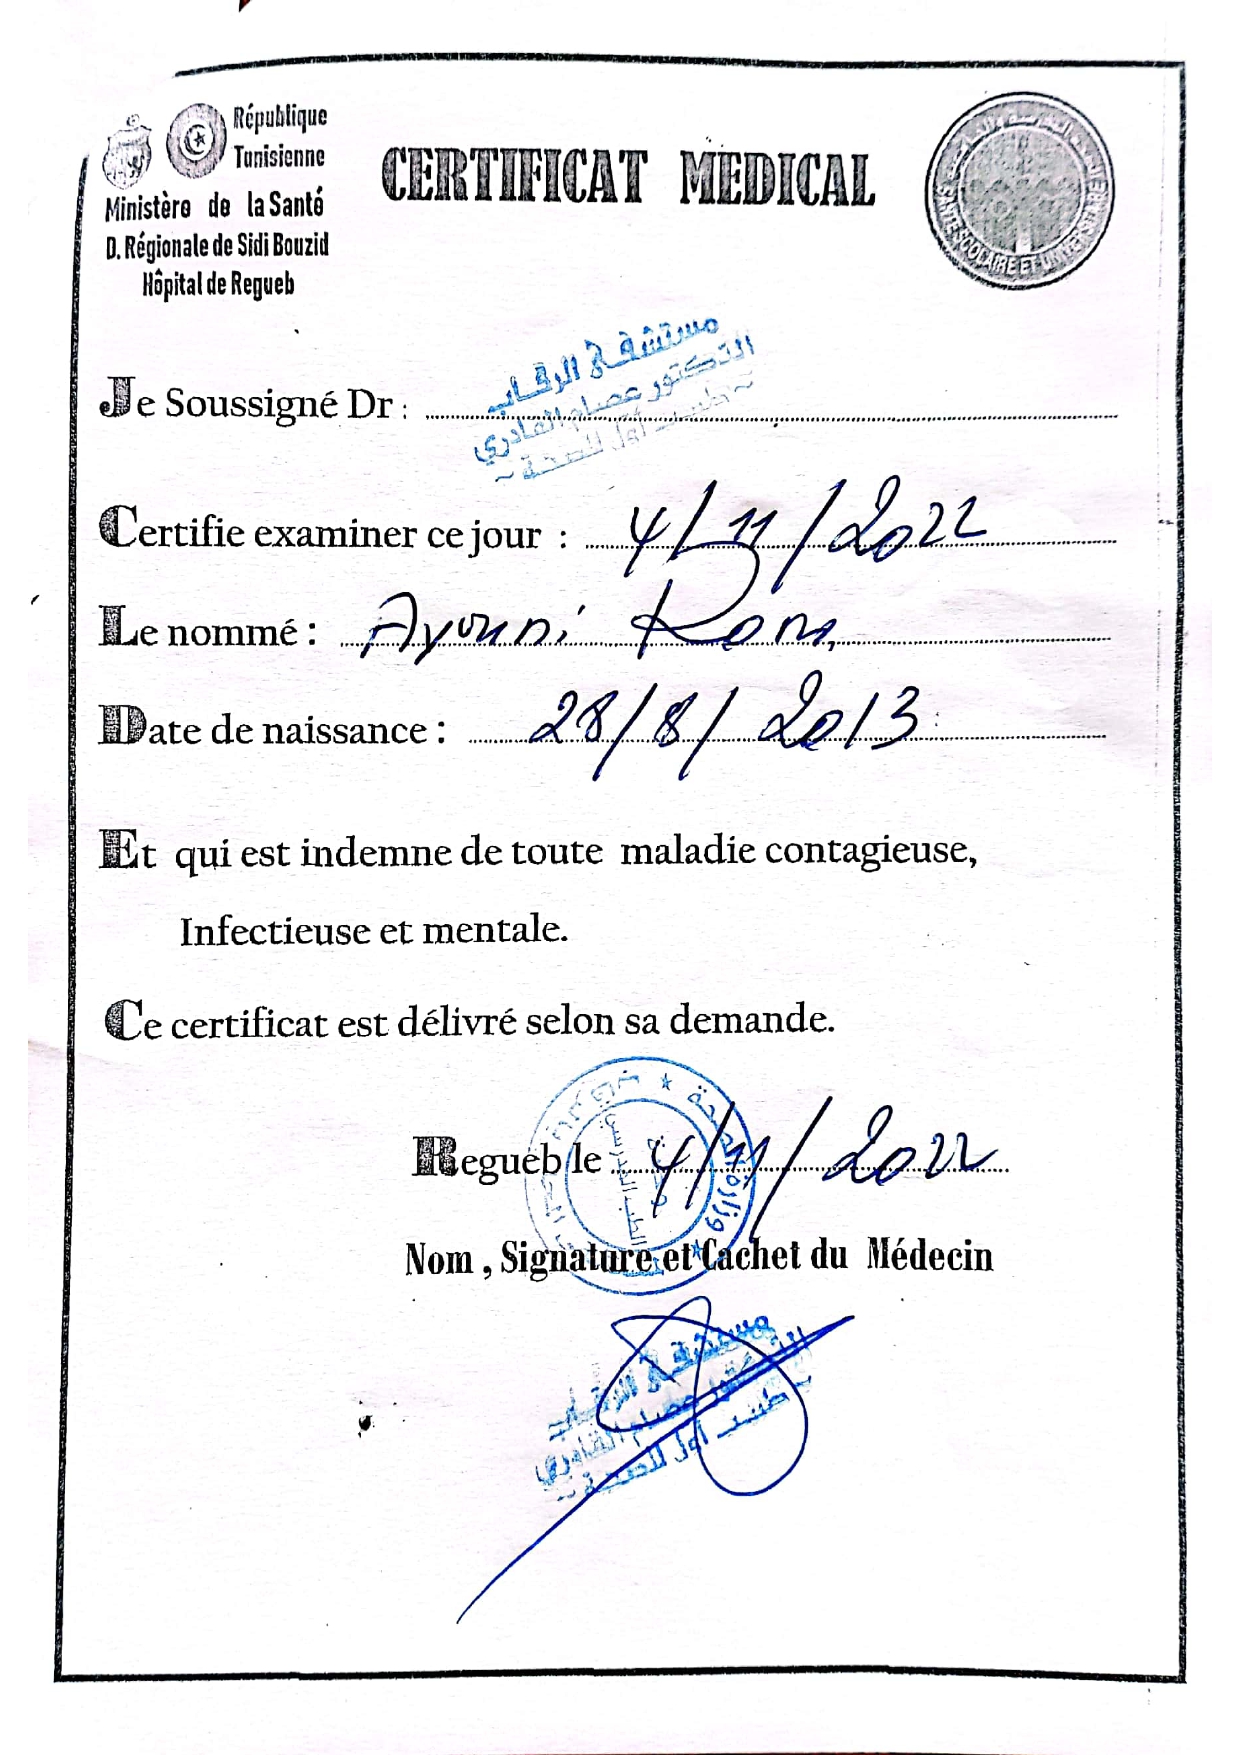 République
Tunisienne
Ministère de la Santé
D. Régionale de Sidi Bouzid
Hôpital de Regueb
CERTIFICAT MEDICAL
SANTE SCOLAIRE ET UNIVERSITAIRE
Je Soussigné Dr :
مستشفى الرقاب
الدكتور عصام القادري
~ طبيب أول للصحة ~
Certifie examiner ce jour : 4/11/2022
Le nommé : Ayouni
Date de naissance : 28/8/2013
Et qui est indemne de toute maladie contagieuse,
Infectieuse et mentale.
Ce certificat est délivré selon sa demande.
Regueb le 4/11/2022
وزارة الصحة
الطب المدرسي
Nom , Signature et Cachet du Médecin
مستشفى الرقاب
الدكتور عصام القادري
~ طبيب أول للصحة ~